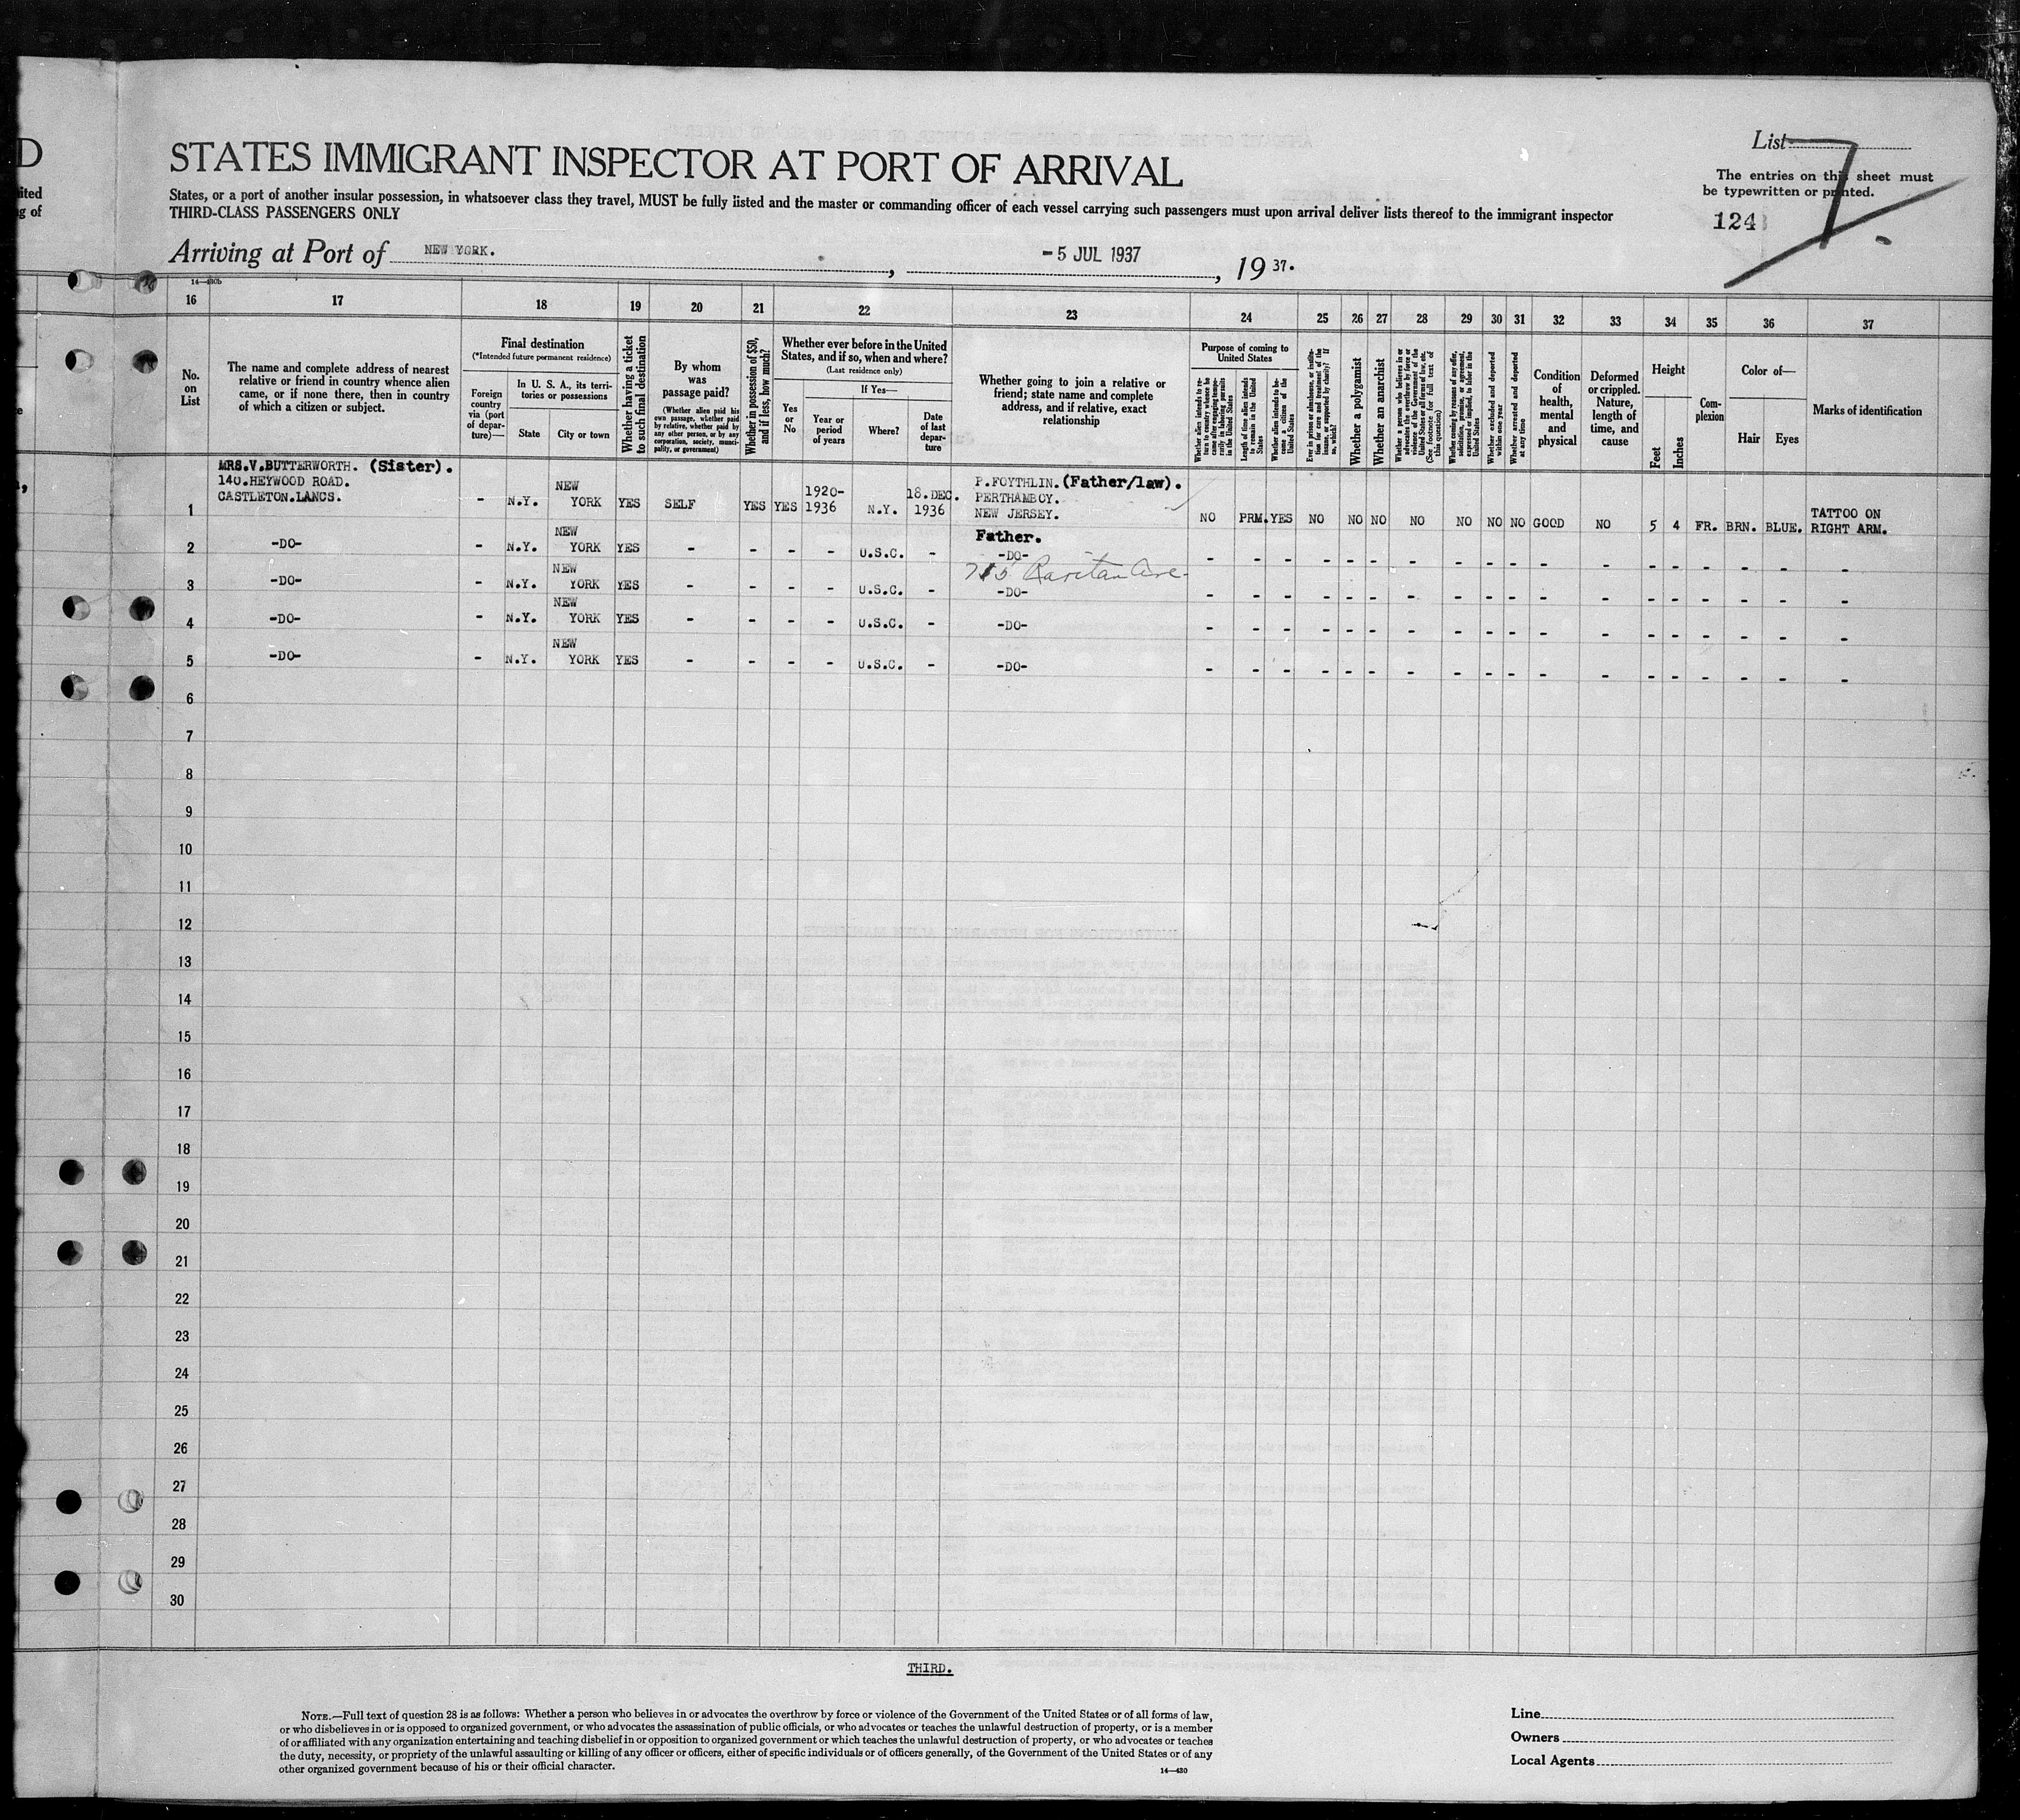 D
STATES IMMIGRANT INSPECTOR AT PORT OF ARRIVAL
List
7
ited
g of
States, or a port of another insular possession, in whatsoever class they travel, MUST be fully listed and the master or commanding officer of each vessel carrying such passengers must upon arrival deliver lists thereof to the immigrant inspector
THIRD-CLASS PASSENGERS ONLY
The entries on this sheet must
be typewritten or printed.
124
Arriving at Port of NEW YORK. , -5 JUL 1937 , 19 37.
14—430b
16 17 18 19 20 21 22 23 24 25 26 27 28 29 30 31 32 33 34 35 36 37
No. on List
The name and complete address of nearest
relative or friend in country whence alien
came, or if none there, then in country
of which a citizen or subject.
Final destination
(*Intended future permanent residence)
Foreign country via (port of departure)—
In U. S. A., its terri-
tories or possessions
State
City or town
Whether having a ticket
to such final destination
By whom
was
passage paid?
(Whether alien paid his
own passage, whether paid
by relative, whether paid by
any other person, or by any
corporation, society, munici-
pality, or government)
Whether in possession of $50,
and if less, how much?
Whether ever before in the United
States, and if so, when and where?
(Last residence only)
Yes or No
If Yes—
Year or period of years
Where?
Date of last depar-ture
Whether going to join a relative or
friend; state name and complete
address, and if relative, exact
relationship
Purpose of coming to
United States
Whether alien intends to re-
turn to country whence he
came after engaging tempo-
rarily in laboring pursuits
in the United States
Length of time alien intends
to remain in the United
States
Whether alien intends to be-
come a citizen of the
United States
Ever in prison or almshouse, or institu-
tion for care and treatment of the
insane, or supported by charity? If
so, which?
Whether a polygamist
Whether an anarchist
Whether a person who believes in or
advocates the overthrow by force or
violence of the Government of the
United States or all forms of law, etc.
(See footnote for full text of
this question)
Whether coming by reasons of any offer,
solicitation, promise, or agreement,
expressed or implied, to labor in the
United States
Whether excluded and deported
within one year
Whether arrested and deported
at any time
Condition
of
health,
mental
and
physical
Deformed
or crippled.
Nature,
length of
time, and
cause
Height
Feet
Inches
Com-
plexion
Color of—
Hair
Eyes
Marks of identification
MRS.V.BUTTERWORTH. (Sister).
140.HEYWOOD ROAD.
CASTLETON.LANCS.
1 - N.Y. NEW YORK YES SELF YES YES 1920-1936 N.Y. 18.DEC. 1936
P.FOYTHLIN.(Father/law).
PERTHAMBOY.
NEW JERSEY.
NO PRM. YES NO NO NO NO NO NO NO GOOD NO 5 4 FR. BRN. BLUE. TATTOO ON RIGHT ARM.
Father.
2 -DO- - N.Y. NEW YORK YES - - - - U.S.C. - -DO- - - - - - - - - - - - - - - - - - -
715 Raritan Ave.
3 -DO- - N.Y. NEW YORK YES - - - - U.S.C. - -DO- - - - - - - - - - - - - - - - - - -
4 -DO- - N.Y. NEW YORK YES - - - - U.S.C. - -DO- - - - - - - - - - - - - - - - - - -
5 -DO- - N.Y. NEW YORK YES - - - - U.S.C. - -DO- - - - - - - - - - - - - - - - - - -
6
7
8
9
10
11
12
13
14
15
16
17
18
19
20
21
22
23
24
25
26
27
28
29
30
THIRD.
NOTE.—Full text of question 28 is as follows: Whether a person who believes in or advocates the overthrow by force or violence of the Government of the United States or of all forms of law,
or who disbelieves in or is opposed to organized government, or who advocates the assassination of public officials, or who advocates or teaches the unlawful destruction of property, or is a member
of or affiliated with any organization entertaining and teaching disbelief in or opposition to organized government or which teaches the unlawful destruction of property, or who advocates or teaches
the duty, necessity, or propriety of the unlawful assaulting or killing of any officer or officers, either of specific individuals or of officers generally, of the Government of the United States or of any
other organized government because of his or their official character.
14—430
Line
Owners
Local Agents